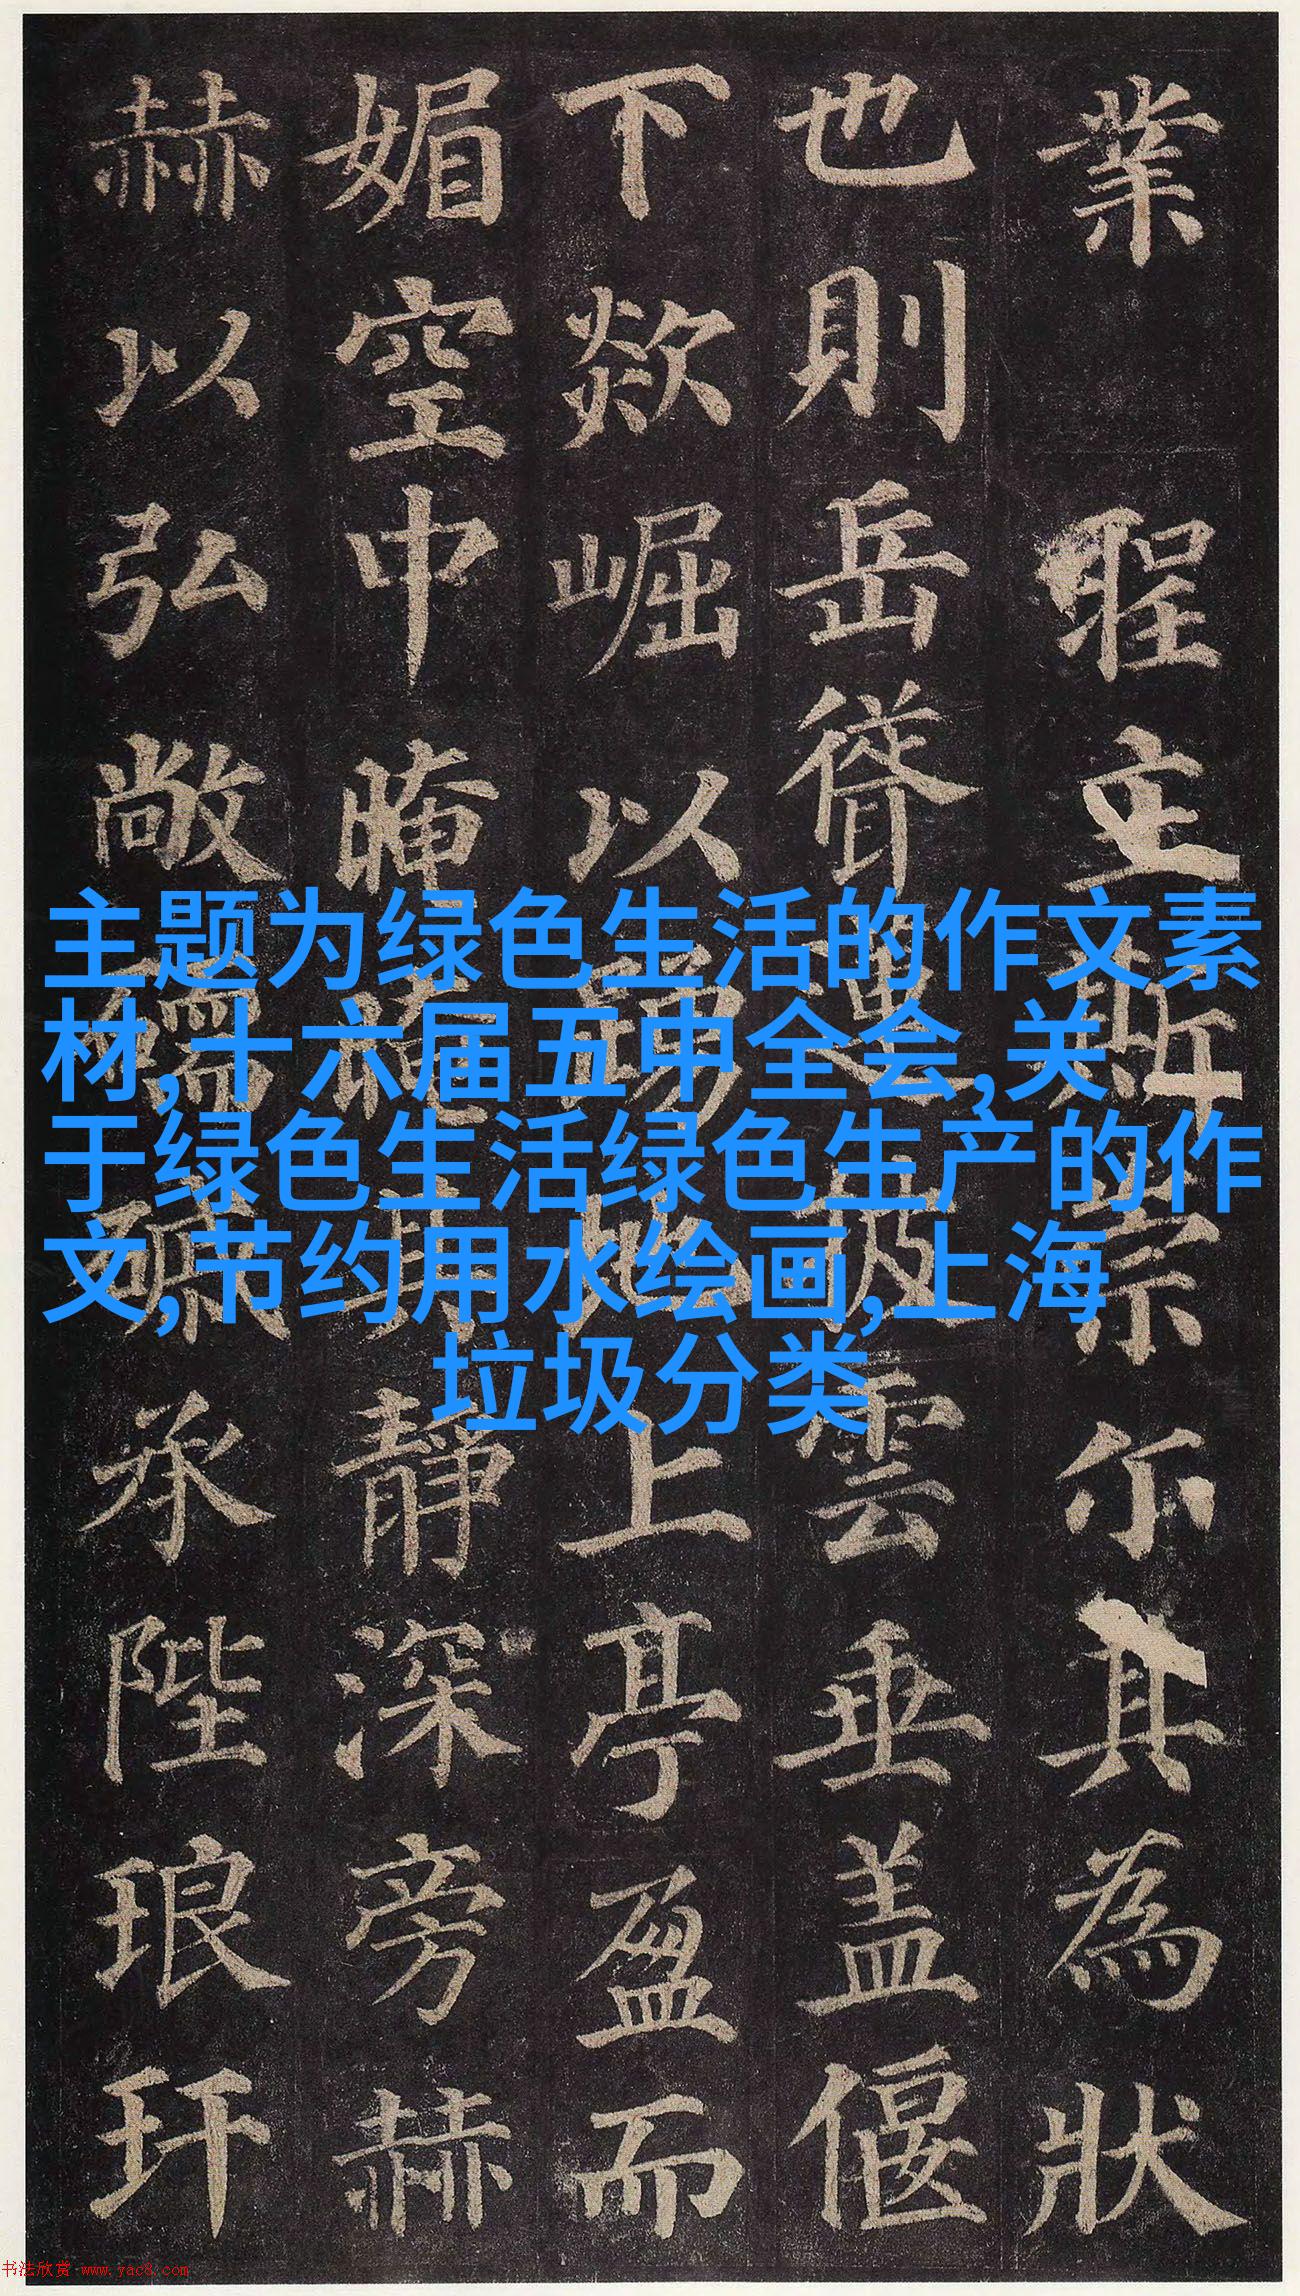 業聖主斯崇尔其為狀
也則岳聳蓮披雲垂蓋偃
下欻崛以踊地上亭盈而
媚空中晻晻其靜深旁赫
赫以弘敞礝磩承陛琅玕
主题为绿色生活的作文素
材,十六届五中全会,关
于绿色生活绿色生产的作
文,节约用水绘画,上海
垃圾分类
书法欣赏 www.yac8.com